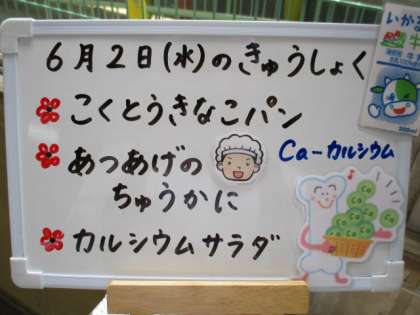 6月2日(水)のきゅうしょく
こくとうきなこパン
あつあげの
ちゅうかに
Ca-カルシウム
カルシウムサラダ
いかる
牛
Ca
Ca
Ca
Ca
Ca
Ca